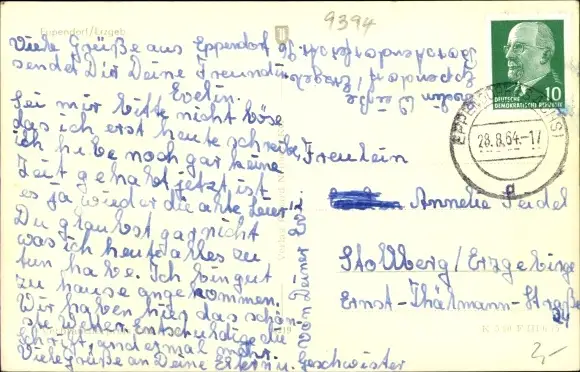 Eppendorf/Erzgeb.
9394
Viele Grüße aus Eppendorf
sendet Dir Deine Freundin
Evelin.
Sei mir bitte nicht böse
das ich erst heute schreibe,
ich habe noch gar keine
Zeit gehabt jetzt ist
es ja wieder die alte Leier
Du glaubst gar nicht
was ich heut alles zu
tun habe. Ich bin gut
zu hause angekommen.
Wir haben hier das schön-
ste Wetter. Entschuldige die
Schrift, and ermal mehr.
Viele Grüße an Deine Eltern u. Geschwister
von Deiner Ev
Eppendorf/Erzgeb.
DEUTSCHE
DEMOKRATISCHE REPUBLIK
10
28.8.64.-17
d
Freulein
Annelie Seidel
Stollberg/Erzgebirge
Ernst-Thälmann-Straße
24
3,-